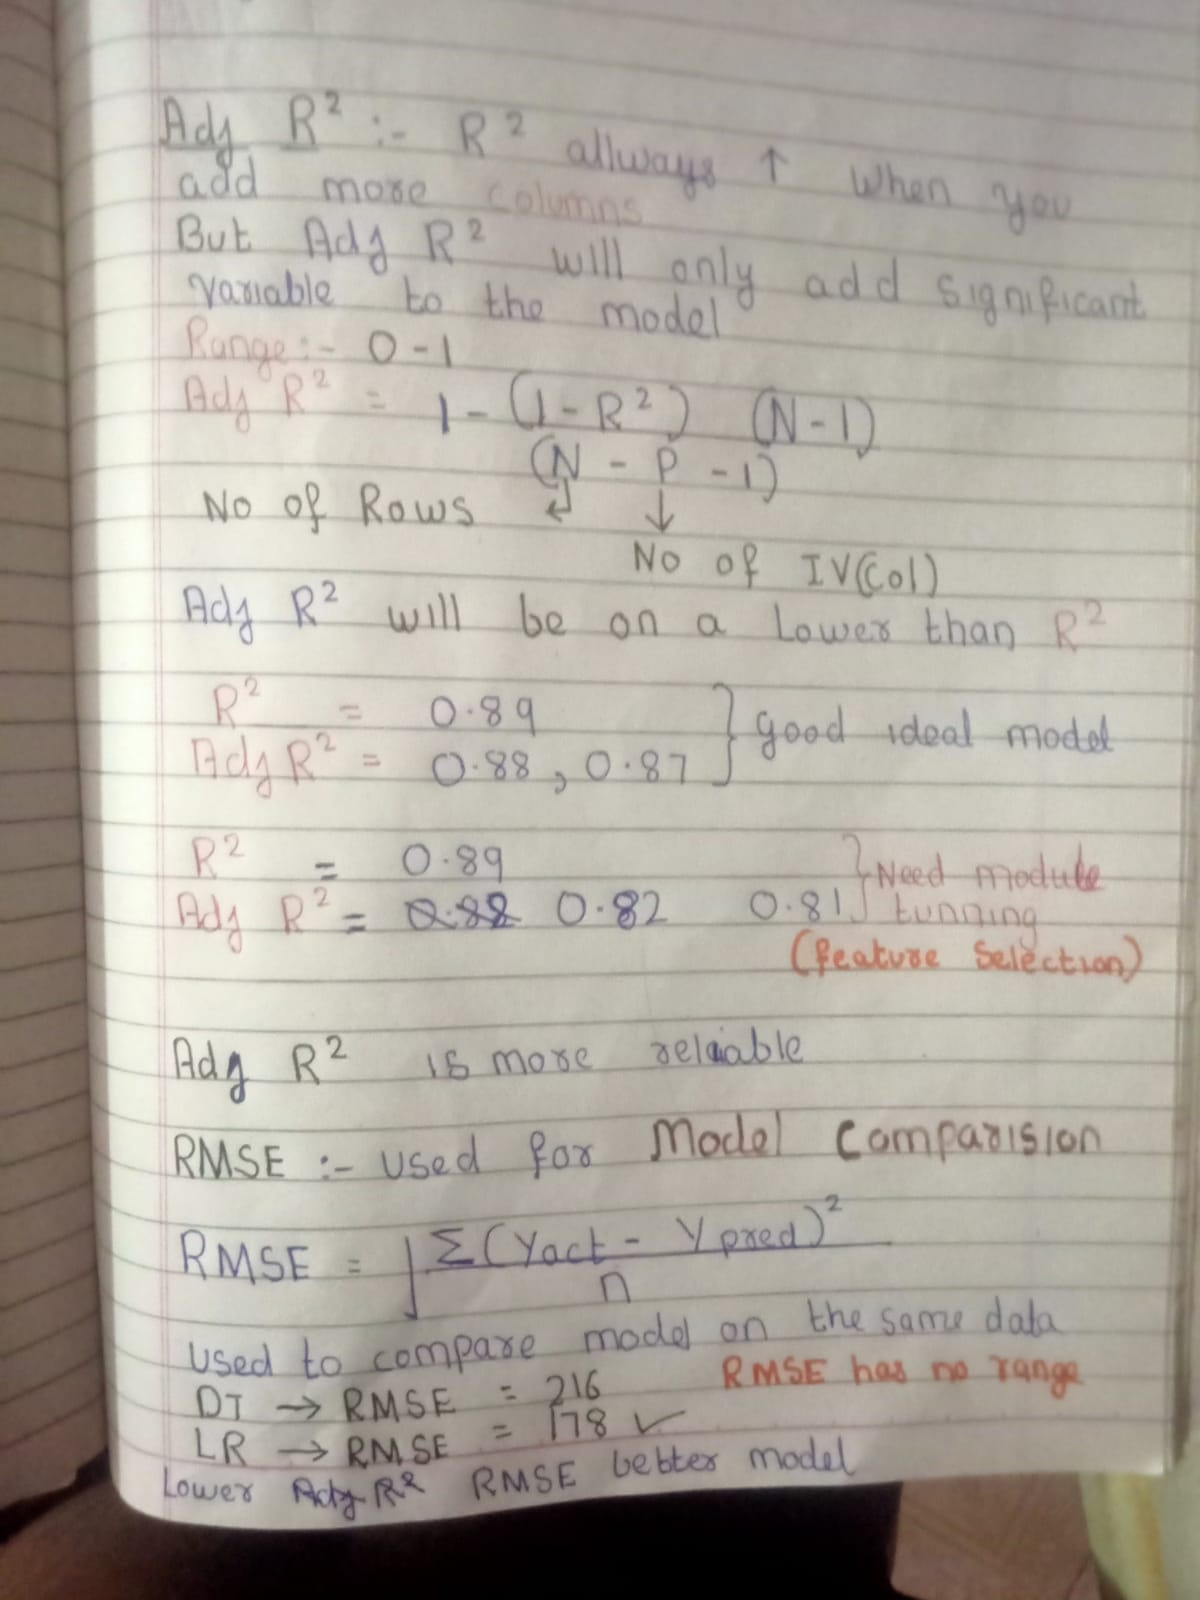 Adj R² :- R² allways ↑ When you
add more columns
But Adj R² will only add significant
variable to the model
Range :- 0 - 1
Adj R² = 1 - (1 - R²) (N - 1)
(N - P - 1)
No of Rows ↲ ↓
No of IV(Col)
Adj R² will be on a Lower than R²
R² = 0.89
Adj R² = 0.88, 0.87 } good ideal model
R² = 0.89
Adj R² = 0.88 0.82 0.81 } Need module
tunning
(feature Selection)
Adj R² is more reliable
RMSE :- used for Model Comparision
RMSE = √ Σ(Yact - Ypred)²
n
used to compare model on the same data
DT → RMSE = 216 RMSE has no range
LR → RMSE = 178 ✓
Lower Adj R² RMSE better model